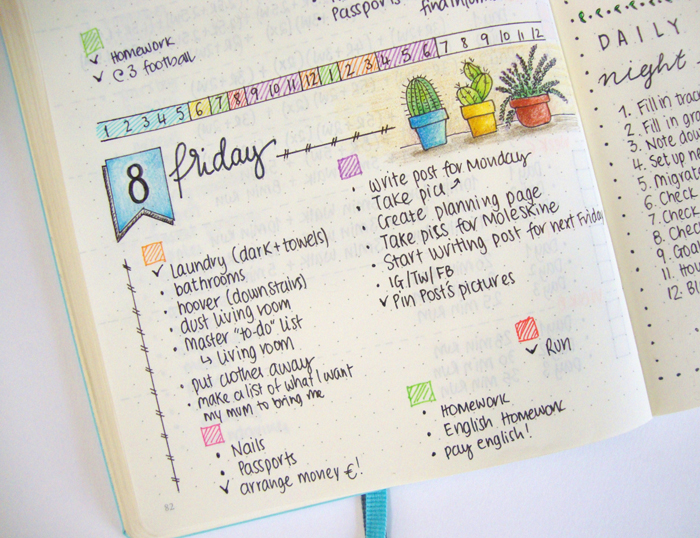 Passports
find inform
Homework
C3 football
1 2 3 4 5 6 7 8 9 10 11 12 1 2 3 4 5 6 7 8 9 10 11 12
8 friday
Laundry (dark+towels)
bathrooms
hoover (downstairs)
dust living room
Master "to-do" list
↳ Living room
put clothes away
make a list of what I want
my mum to bring me
Nails
Passports
arrange money €!
write post for Monday
Take pics
Create planning page
Take pics for Moleskine
Start writing post for next Friday
IG/TW/FB
Pin Post's pictures
Run
Homework
English Homework
pay english!
82
DAILY
night
1. Fill in trac
2. Fill in gra
3. Note dow
4. Set up ne
5. Migrate
6. Check
7. Check
8. Chec
9. Goa
10. 
11. Ho
12. Bl